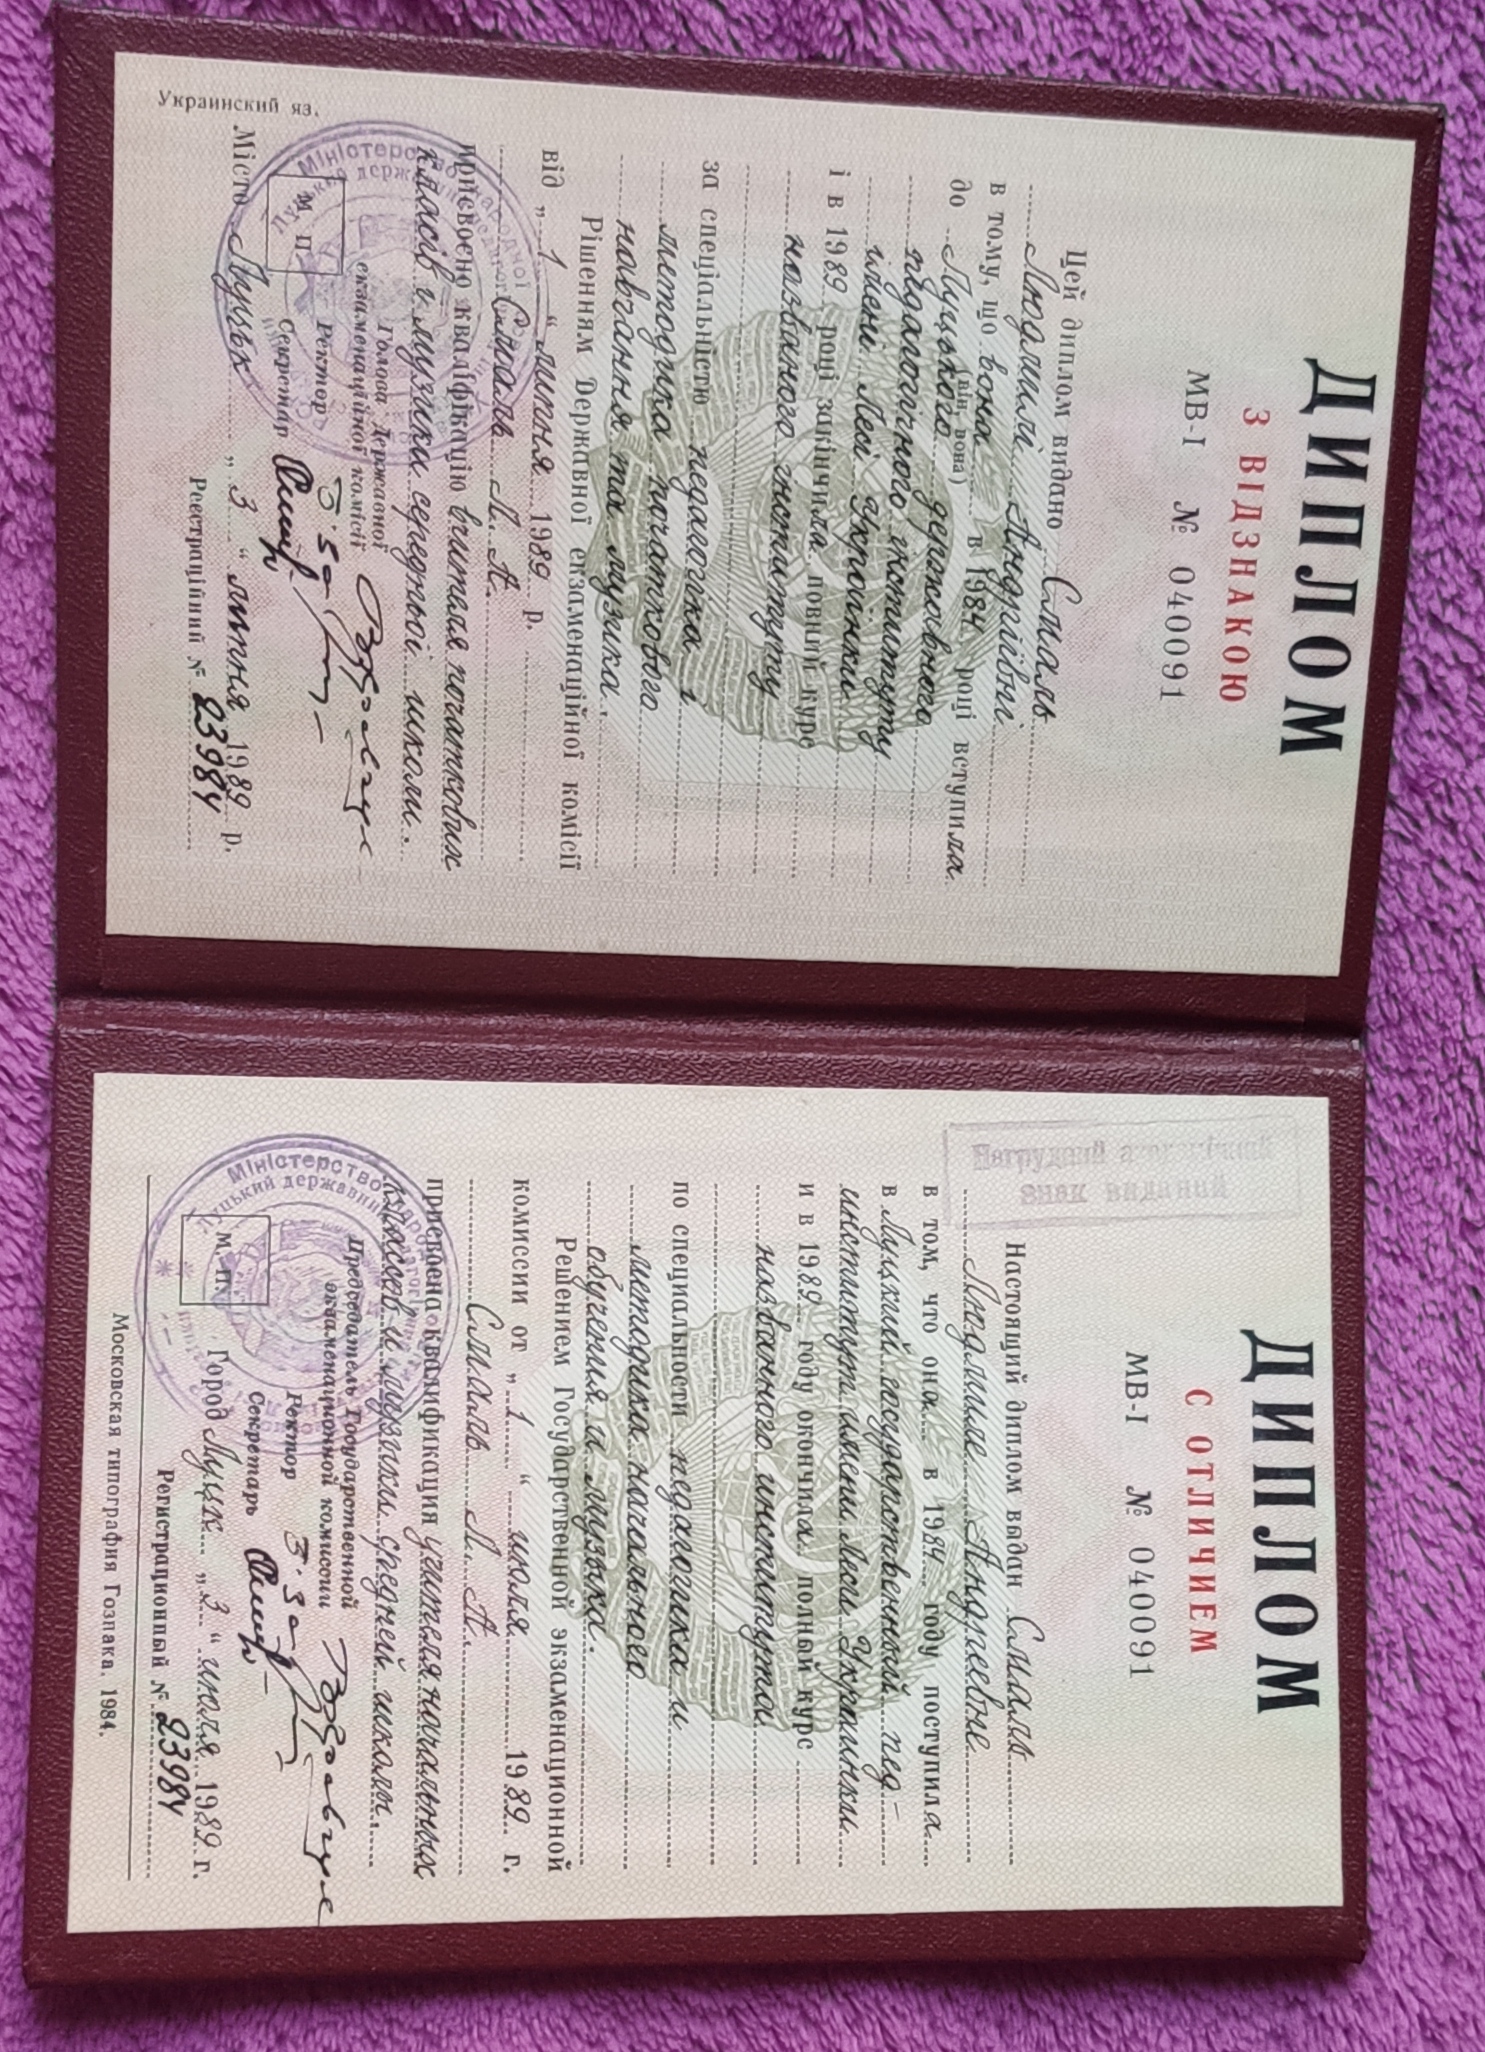 ДИПЛОМ
З ВІДЗНАКОЮ
МВ-I № 040091
Цей диплом видано Смаль
Людмилі Андріївні
в тому, що вона в 1984 році вступила
(він, вона)
до Луцького державного
педагогічного інституту
імені Лесі Українки
і в 1989 році закінчила повний курс
названого інституту
за спеціальністю педагогіка і
методика початкового
навчання та музика.
Рішенням Державної екзаменаційної комісії
від „1“ липня 1989 р.
Смаль Л. А.
присвоєно кваліфікацію вчителя початкових
класів і музики середньої школи.
Голова Державної
екзаменаційної комісії
Ректор
Секретар
М П
Місто Луцьк „3“ липня 1989 р.
Реєстраційний № 23984
Украинский яз.
ДИПЛОМ
С ОТЛИЧИЕМ
МВ-I № 040091
Нагрудний
знак виданий
Настоящий диплом выдан Смаль
Людмиле Андреевне
в том, что она в 1984 году поступила
в Луцкий государственный пед-
институт имени Леси Украинки
и в 1989 году окончила полный курс
названного института
по специальности педагогика и
методика начального
обучения и музыка.
Решением Государственной экзаменационной
комиссии от „1“ июля 1989 г.
Смаль Л. А.
присвоена квалификация учителя начальных
классов и музыки средней школы.
Председатель Государственной
экзаменационной комиссии
Ректор
Секретарь
М. П.
Город Луцк „3“ июля 1989 г.
Регистрационный № 23984
Московская типография Гознака. 1984.